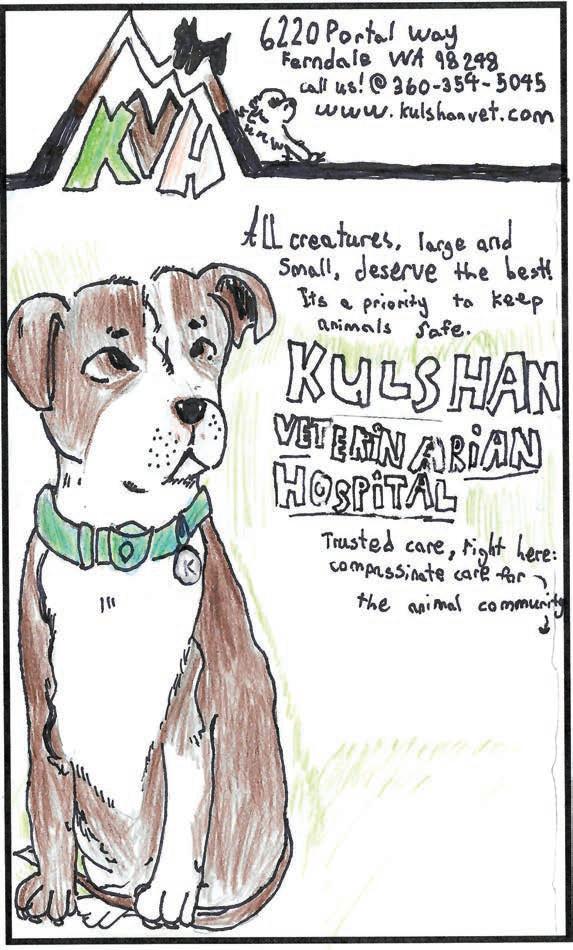 6220 Portal Way
Ferndale WA 98248
call us! @ 360-354-5045
www.kulshanvet.com
KVH
All creatures, large and
Small, deserve the best!
Its a priority to keep
animals safe.
KULSHAN
VETERINARIAN
HOSPITAL
Trusted care, right here:
compassinate care for
the animal community
K